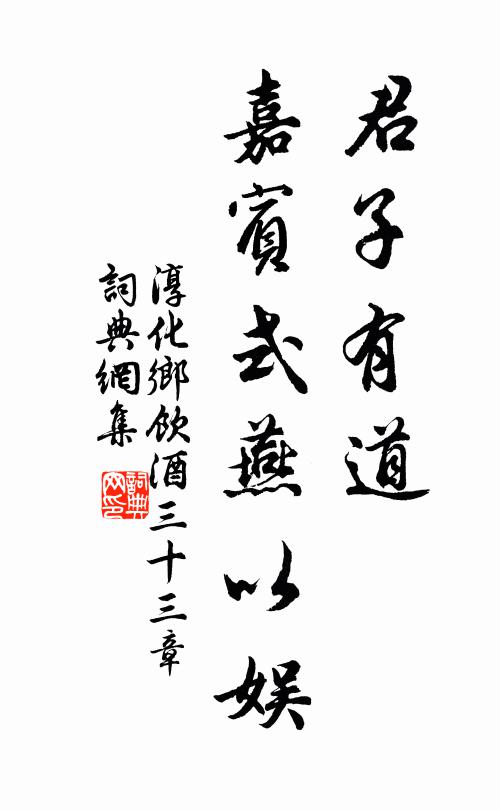 君子有道
嘉賓式燕以娛
淳化鄉飲酒三十三章
詞典網集
詞典网印